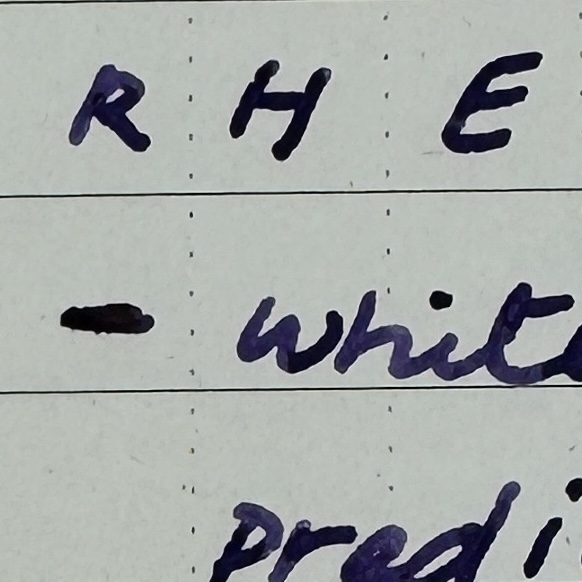 R H E
- white
predi